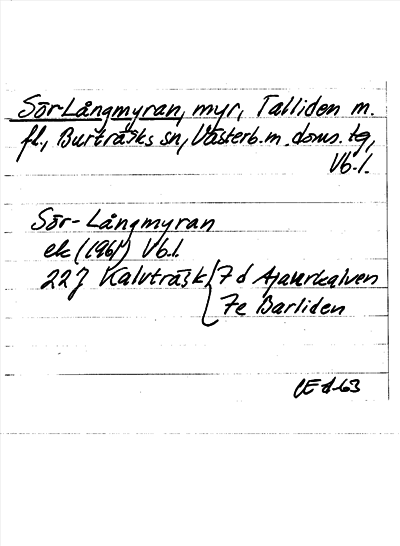 Sör-Långmyran, myr, Talliden m.
fl., Burträsks sn, Västerb.m. doms. tg,
Vb.l.
Sör-Långmyran
ek (1961) Vb.l.
22J Kalvträsk 7d Ajaurkalven
7e Barliden